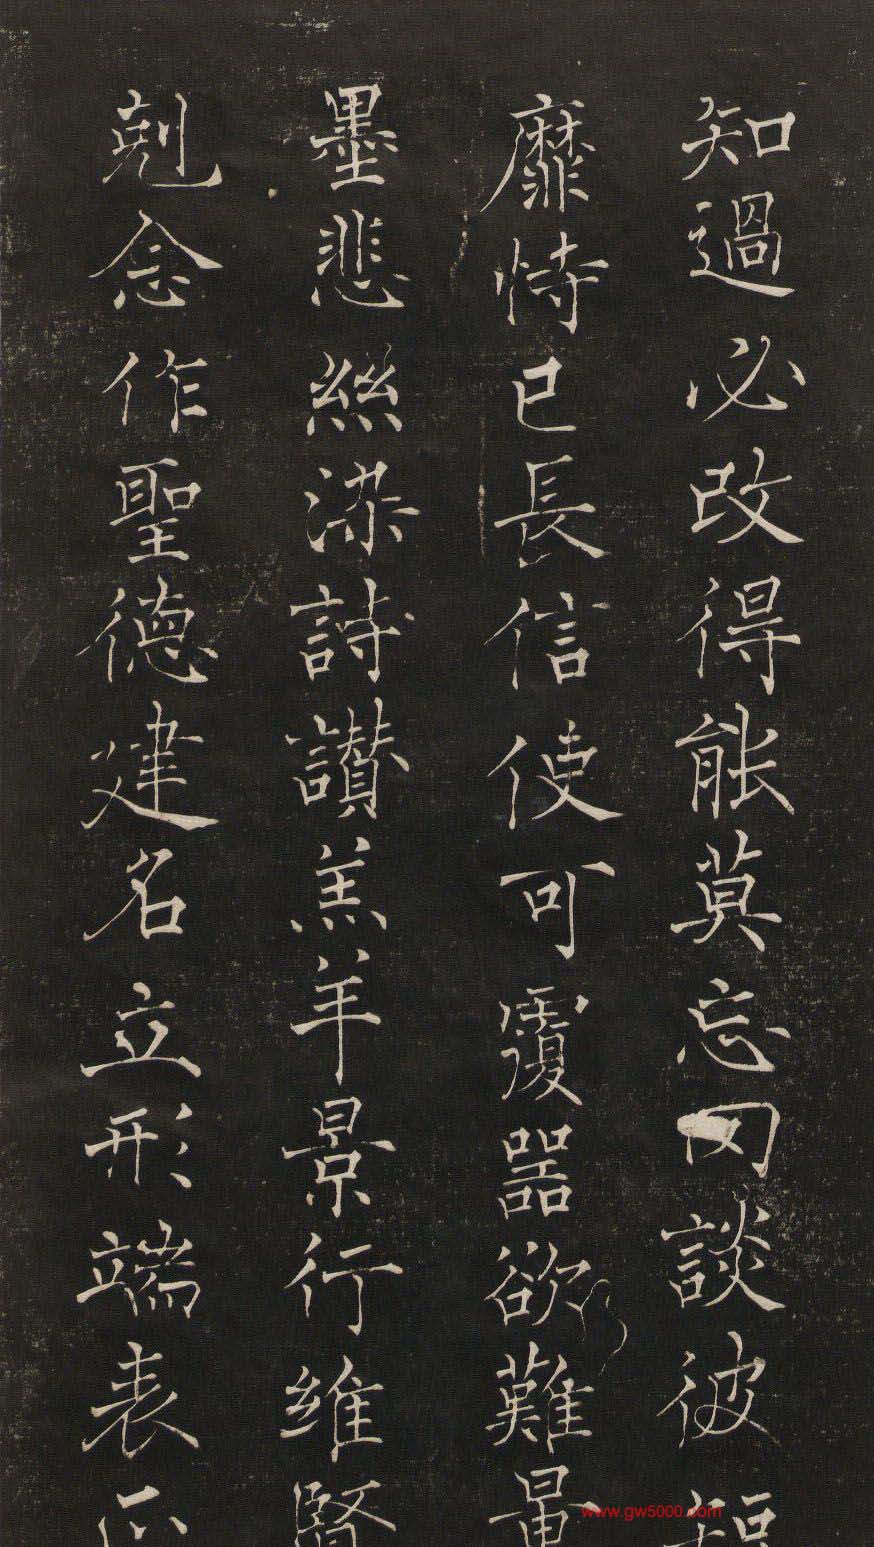 知過必改得能莫忘罔談彼短
靡恃己長信使可覆器欲難量
墨悲絲染詩讚羔羊景行維賢
剋念作聖德建名立形端表正
www.gw5000.com